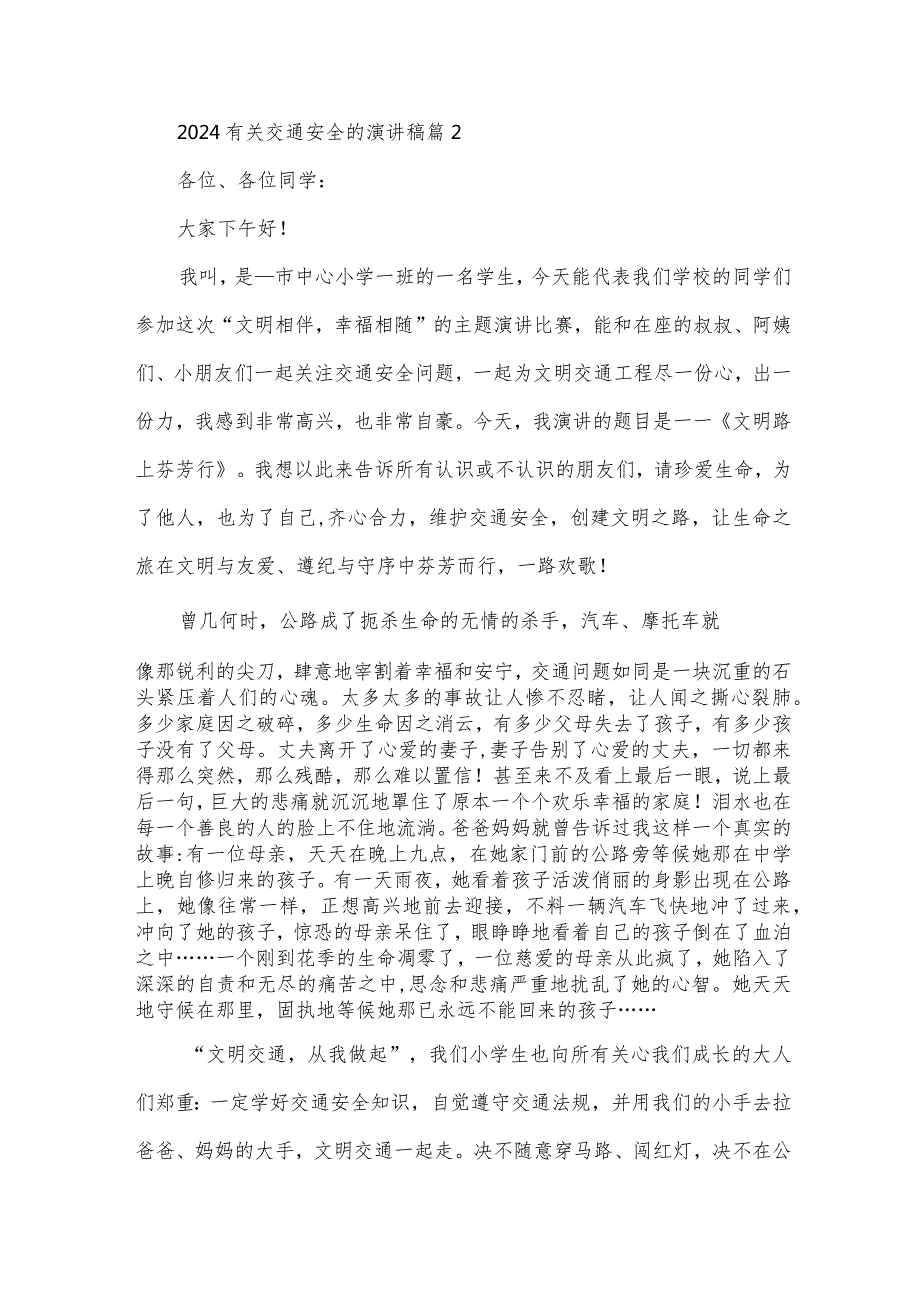 2024有关交通安全的演讲稿篇2
各位、各位同学：
大家下午好！
我叫，是—市中心小学一班的一名学生，今天能代表我们学校的同学们
参加这次“文明相伴，幸福相随”的主题演讲比赛，能和在座的叔叔、阿姨
们、小朋友们一起关注交通安全问题，一起为文明交通工程尽一份心，出一
份力，我感到非常高兴，也非常自豪。今天，我演讲的题目是一一《文明路
上芬芳行》。我想以此来告诉所有认识或不认识的朋友们，请珍爱生命，为
了他人，也为了自己,齐心合力，维护交通安全，创建文明之路，让生命之
旅在文明与友爱、遵纪与守序中芬芳而行，一路欢歌！
曾几何时，公路成了扼杀生命的无情的杀手，汽车、摩托车就
像那锐利的尖刀，肆意地宰割着幸福和安宁，交通问题如同是一块沉重的石
头紧压着人们的心魂。太多太多的事故让人惨不忍睹，让人闻之撕心裂肺。
多少家庭因之破碎，多少生命因之消云，有多少父母失去了孩子，有多少孩
子没有了父母。丈夫离开了心爱的妻子,妻子告别了心爱的丈夫，一切都来
得那么突然，那么残酷，那么难以置信！甚至来不及看上最后一眼，说上最
后一句，巨大的悲痛就沉沉地罩住了原本一个个欢乐幸福的家庭！泪水也在
每一个善良的人的脸上不住地流淌。爸爸妈妈就曾告诉过我这样一个真实的
故事:有一位母亲，天天在晚上九点，在她家门前的公路旁等候她那在中学
上晚自修归来的孩子。有一天雨夜，她看着孩子活泼俏丽的身影出现在公路
上，她像往常一样，正想高兴地前去迎接，不料一辆汽车飞快地冲了过来，
冲向了她的孩子，惊恐的母亲呆住了，眼睁睁地看着自己的孩子倒在了血泊
之中……一个刚到花季的生命凋零了，一位慈爱的母亲从此疯了，她陷入了
深深的自责和无尽的痛苦之中,思念和悲痛严重地扰乱了她的心智。她天天
地守候在那里，固执地等候她那已永远不能回来的孩子……
“文明交通，从我做起”，我们小学生也向所有关心我们成长的大人
们郑重：一定学好交通安全知识，自觉遵守交通法规，并用我们的小手去拉
爸爸、妈妈的大手，文明交通一起走。决不随意穿马路、闯红灯，决不在公